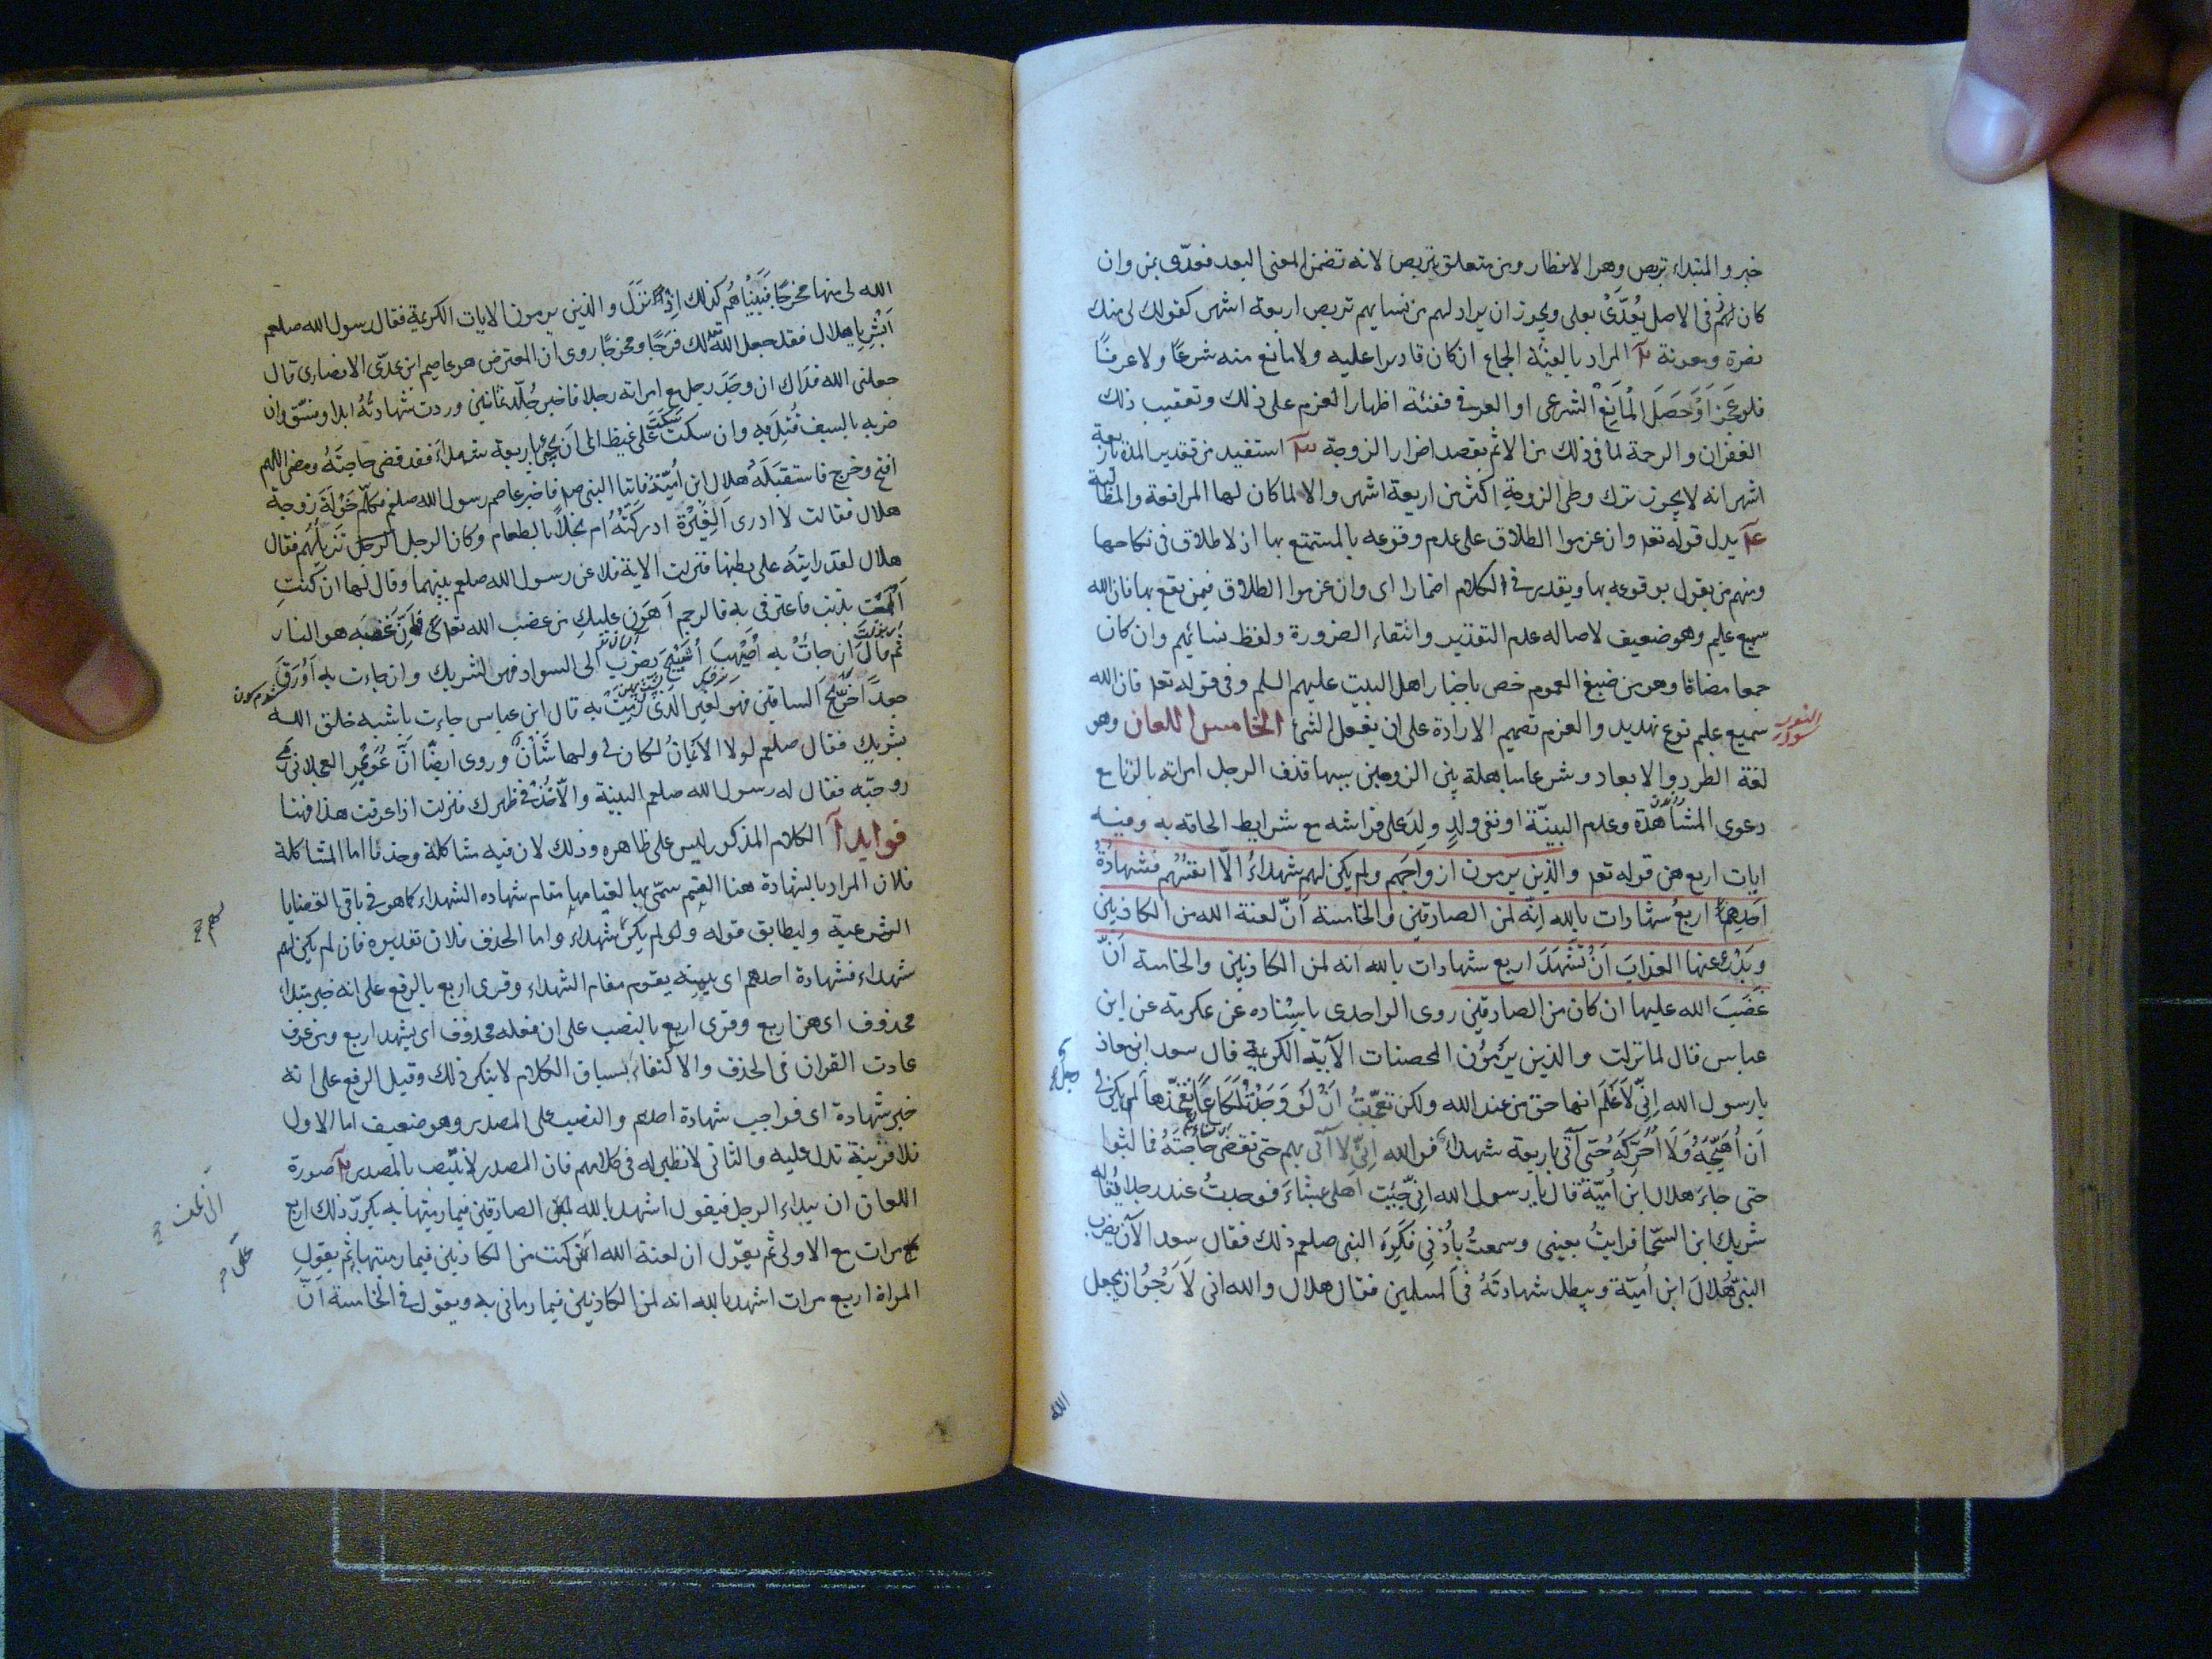 خبر والمبتداء تربص وهو الانتظار ومن متعلق بتربص لانه تضمن المعنى البعد فعدّى بمن وان
كان لهم فى الاصل يُعدّى بعلى ويجوز ان يراد لهم من نسايهم تربص اربعة اشهر كقولك لى منك
نصرة ومعونة المراد بالفيئة الجماع ان كان قادرا عليه ولا مانع منه شرعًا ولا عرفًا
فلو عجز اَوْ حَصَلَ الْمَانِعْ الشرعى او العرفى ففئته اظهار العزم على ذلك وتعقيب ذلك
الغفران والرحمة لما فى ذلك من الاثم بقصد اضرار الزوجة استفيد من تقدير المدة باربعة
اشهر انه لا يجوز ترك وطى الزوجة اكثر من اربعة اشهر والا لما كان لها المرافعة والمطالبة
يدل قوله تعه وان عزموا الطلاق على عدم وقوعه بالمستمتع بها اذ لا طلاق فى نكاحها
ومنهم من يقول بوقوعه بها ويقدر فى الكلام اضمارا اى وان عزموا الطلاق فيمن يقع بها فان الله
سميع عليم وهو ضعيف لاصاله عدم التقدير وانتفاء الضرورة ولفظ نسائهم وان كان
جمعا مضافا وهو من صيغ العموم خص باخبار اهل البيت عليهم السلم وفى قوله تعه فان الله
سميع عليم نوع تهديد والعزم تصميم الارادة على ان يفعل الشئ الخامس اللعان وهو
سورة النور
لغة الطرد والابعاد وشرعا مباهلة بين الزوجين سببها قذف الرجل امراته بالزنا مع
دعوى المشاهدة وعدم البينّة او نفى ولدٍ وُلِدَ على فراشه مع شرايط الحاقه به وفيه
ايات اربع هن قوله تعه والّذين يرمون ازواجَهم ولم يكن لهم شهداءُ الّا انفسُهم فشهادةُ
اَحدِهِمْ اربعُ شهادات بالله اِنّه لمن الصادقين والخامسة اَنّ لعنة الله من الكاذبين
ويدْرءُ عنها العذابَ اَنْ تَشْهَدَ اربع شهادات بالله انه لمن الكاذبين والخامسة اَنّ
غَضَبَ الله عليها ان كان من الصادقين روى الواحدى باسْناده عن عكرمة عن ابن
عباس قال لما نزلت والذين يَرْمُوْن المحصنات الآية الكريمة قال سعد ابن معاذ
يارسول الله اِنّى لَاَعْلَم انها حق من عند الله ولكن تعجّبتُ اَنْ لَوْ وَجَدْتُ لَكَاعًا تفخّذها لم يكن لى
اَن اُهَيّجَهُ وَلَا اُحَرّكَهُ حَتّى آتَى باربعة شهداء فوالله اِنّى لا آتى بهم حتى نقضى حَاجَتَهُ فما لبثوا
حتى جاءَ هلال ابن اُميّة قال يارسول الله انِىّ جِئت اهلى عِشاءَ فوجدتُ عندها رجلا يُقال له
شريك ابن السّحْما فرايتُ بعينى وسمعتُ باُذنى فكَرِهَ النبى صلعم ذلك فقال سعد الآن يضرب
النبىّ هُلالَ ابن اُميّة ويبطل شهادتَهُ فى المسلمين فقال هلال والله انى لَاَرْجُوْا ان يجعل
الله
الله لى منها مخرجًا فَبَيْنَاهُم كذلك اِذْ نزَلَ والذين يرمون الايات الكريمة فقال رسول الله صلعم
اَبْشِرْ يا هلال فقد جعل الله لك فرَجًا ومخرجًا روى ان المعترض هو عاصم ابن عدّى الانصارى قال
جعلنى الله فداك ان وجَدَ رجل مع امراته رجلا فاخبر جُلّد ثمانين وردت شهادتُهُ ابدا وفسّق وان
ضربه بالسيف قُتِلَ به وان سكت سَكَتَ على غيظ الى اَن يجئ باربعة شهداءَ فقد قضى حاجتَهُ ومضى اللهم
افتح وخرج فاستقبَلَهُ هلال ابن اُميّة فاتيا النبى صلعم فاخبر عاصم رسول الله صلعم فكلّم خَوْلَةَ زوجة
هلال فقالت لا ادرى اَلْغَيْرَةُ ادركَتْهُ ام بخلًا بالطعام وكان الرجل الرجل نَزيلَهُم فقال
هلال لقد رايته على بطنها فنزلت الاية فلاعن رسول الله صلعم بينهما وقال لها ان كنتِ
اَلممْت بذنب فاعترفى به فالرجم اَهَون عليكِ من غضب الله تعالى فاِنّ غضبَه هو النار
ثم قال ان جاتْ به اُصَيْهِبَ اُثَيْبِجَ يضرب الى السواد فهو لشريك وان جاءت به اَوْرَقَ
جعدًا خَدَلّجَ الساقين فهو لغير الّذى رُميتْ به قال ابن عباس جاءت باشبه خلق الله
بشريك فقال صلعم لولا الاَيْمَانُ لكان لى ولها شأنٌ وروى ايضًا اَنّ عُوَيْمِر العجلانى رمى
زوجته فقال له رسول الله صلعم البينة والّا حُدّ فى ظهرك فنزلت اذا عرفت هذا فهنا
فوايد آ الكلام المذكور ليس على ظاهره وذلك لان فيه مشاكلة وحذفا اما المشاكلة
فلان المراد بالشهادة هنا القسم سمّى بها لقيامها مقام شهاده الشهداء كما هو فى باقى القضايا
الشرعية وليطابق قوله ولم يكن شهداء واما الحذف فلان تقديره فان لم يكن لهم
شهداء فشهادة احدهم اى يمينه يقوم مقام الشهداء وقرى اربع بالرفع على انه خبر مبتداء
محذوف اى هن اربع وقرى اربع بالنصب على ان فعله محذوف اى يشهد اربع ومن عرف
عادت القران فى الحذف والاكتفاء بسياق الكلام لا ينكر ذلك وقيل الرفع على انه
خبر شهادة اى فواجب شهادة احدهم والنصب على المصدر وهو ضعيف اما الاول
فلا قرينة تدل عليه والثانى لا نظير له فى كلامهم فان المصدر لا ينصب بالمصدر صورة
اللعان ان يبداء الرجل فيقول اشهد بالله لمن الصادقين فيما رميتها به يكرّر ذلك اربع
مرات مع الاولى ثم يقول ان لعنة الله اِن كنت من الكاذبين فيما رميتها به ثم يقول
المراة اربع مرات اشهد بالله انه لمن الكاذبين فيما رمانى به ويقول فى الخامسة اَنّ